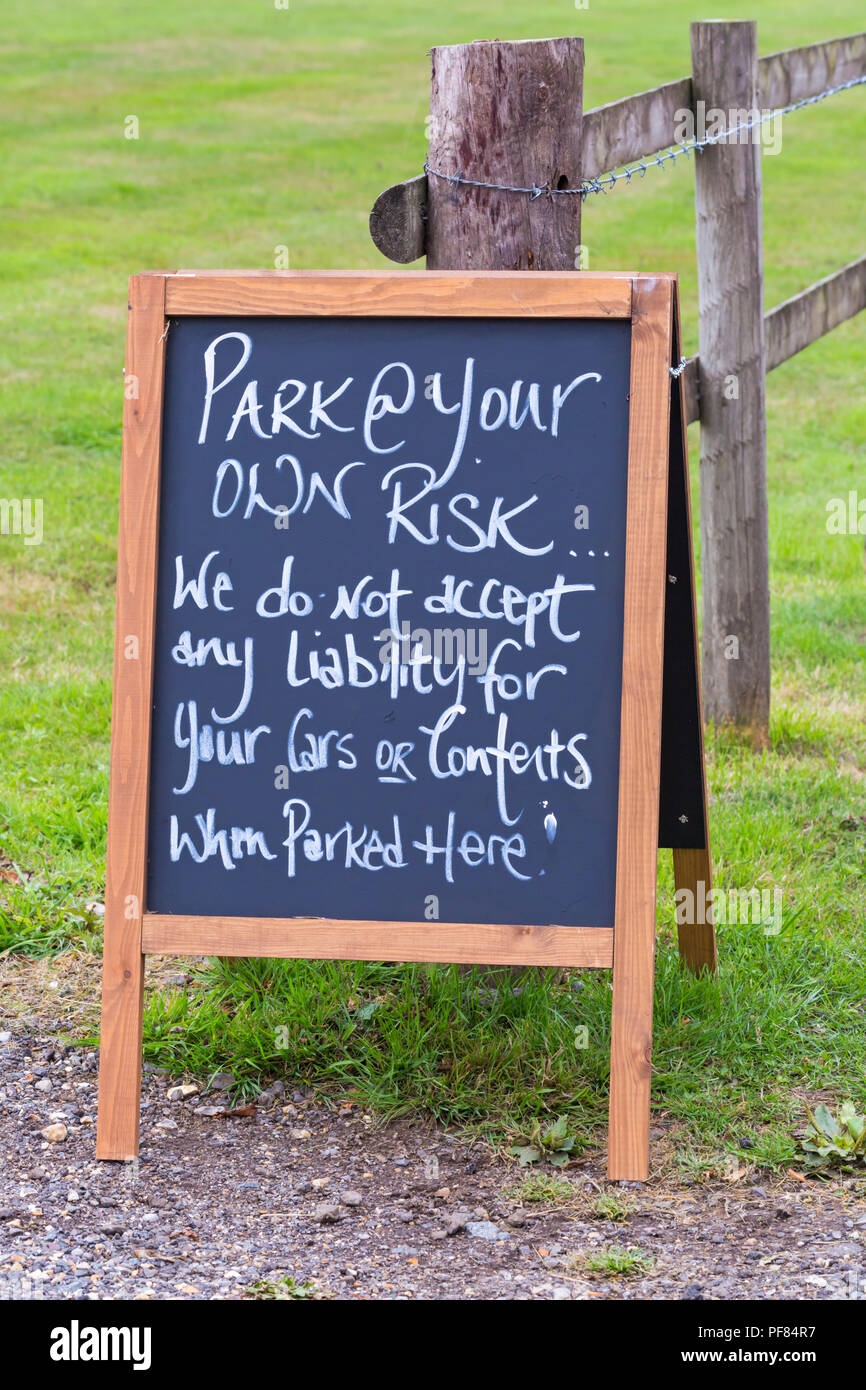 PARK @ Your
OWN RISK...
We do Not accept
any liability for
your Cars OR Contents
Whm Parked Here!
alamy
Image ID: PF84R7
www.alamy.com